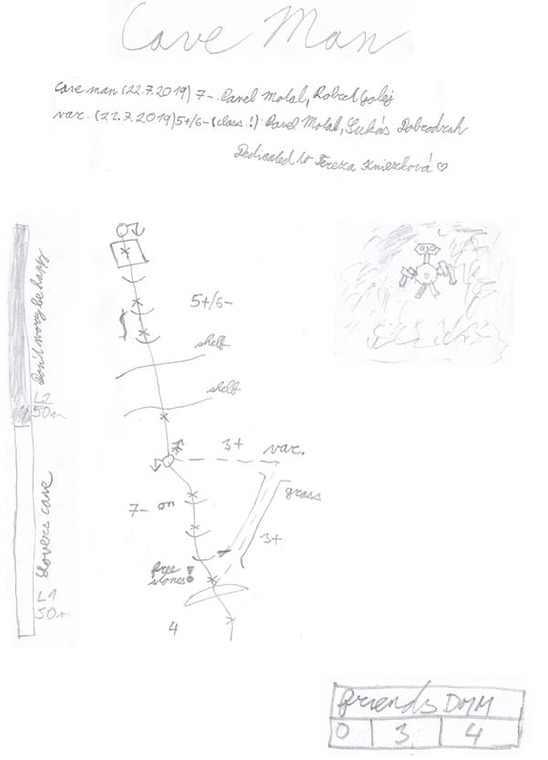 Cave Man
Cave man (22.7.2019) 7- Pavel Motal, Robert
var. (22.7.2019) 5+/6- (class!): Pavel Motal, Lukás
Dedicated to Tereza Kniezková ♡
5+/6-
shelf
shelf
Don't worry be happy
L2
50m
3+
var.
grass
7-
3+
free
stones!
4
cave
L1
50m
friends DMM
0 3 4